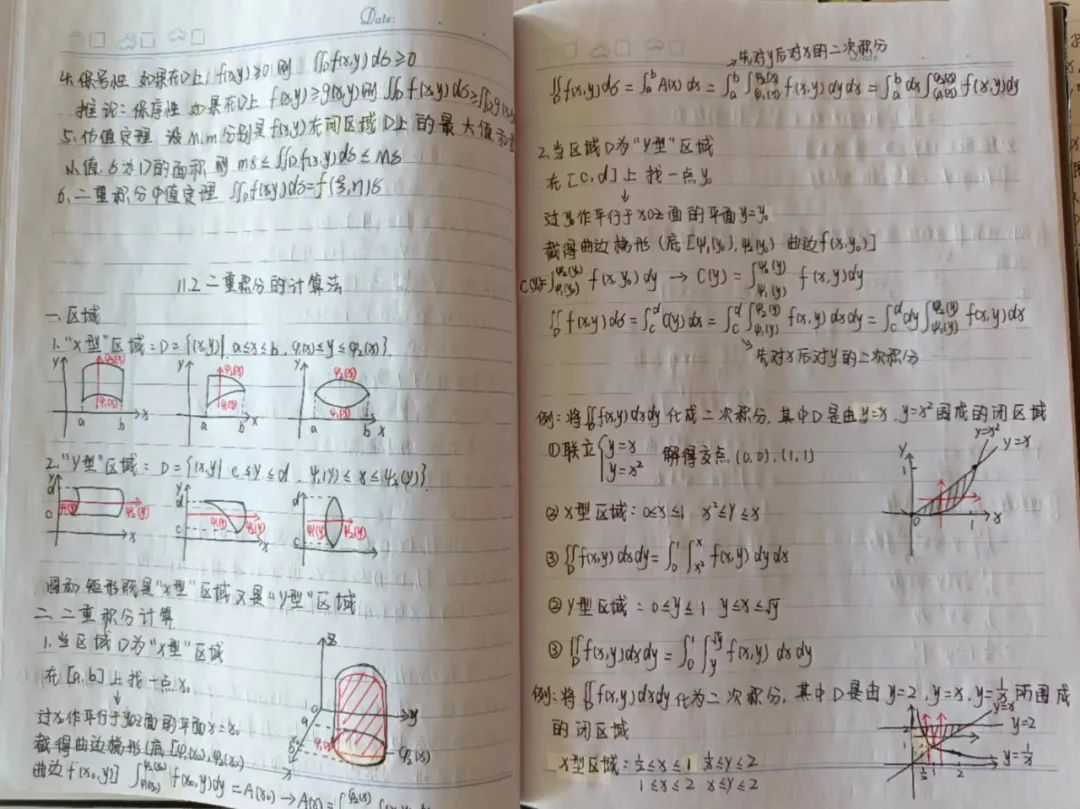 Date:
4. 保号性 如果在D上 f(x,y)≥0 则 ∬_D f(x,y)dσ≥0
推论:保序性 如果在D上 f(x,y)≥g(x,y)则 ∬_D f(x,y)dσ≥∬_D g(x,
5. 估值定理 设M,m分别是f(x,y)在闭区域D上的最大值和
小值,σ为D的面积 则 mσ≤∬_D f(x,y)dσ≤Mσ
6. 二重积分中值定理 ∬_D f(x,y)dσ=f(ξ,η)σ
11.2 二重积分的计算法
一、区域
1. "X型"区域:D={(x,y)| a≤x≤b, φ₁(x)≤y≤φ₂(x)}.
y φ₂(x) φ₁(x) a b x
y φ₂(x) φ₁(x) a b x
y φ₂(x) φ₁(x) a b x
2. "Y型"区域:D={(x,y)| c≤y≤d, ψ₁(y)≤x≤ψ₂(y)}.
y d c ψ₁(y) ψ₂(y) x
y d c ψ₁(y) ψ₂(y) x
d c ψ₁(y) ψ₂(y)
圆和矩形既是"X型"区域又是"Y型"区域
二、二重积分计算
1. 当区域D为"X型"区域
在[a,b]上找一点x₀
↓
过x₀作平行于yoz面的平面x=x₀
截得曲边梯形(底[φ₁(x₀),φ₂(x₀)
曲边f(x₀,y)] ∫_{φ₁(x₀)}^{φ₂(x₀)} f(x₀,y)dy=A(x₀)→A(x)=∫
z o y a x φ₁(x) φ₂(x)
先对y后对x的二次积分
∬_D f(x,y)dσ=∫_a^b A(x)dx=∫_a^b ∫_{φ₁(x)}^{φ₂(x)} f(x,y)dydx=∫_a^b dx∫_{φ₁(x)}^{φ₂(x)} f(x,y)dy
2. 当区域D为"Y型"区域
在[c,d]上找一点y₀
↓
过y₀作平行于xoz面的平面y=y₀
截得曲边梯形(底[ψ₁(y₀),ψ₂(y₀) 曲边f(x,y₀)]
C(y₀)=∫_{ψ₁(y₀)}^{ψ₂(y₀)} f(x,y₀)dy→C(y)=∫_{ψ₁(y)}^{ψ₂(y)} f(x,y)dy
∬_D f(x,y)dσ=∫_c^d C(y)dx=∫_c^d ∫_{ψ₁(y)}^{ψ₂(y)} f(x,y)dxdy=∫_c^d dy∫_{ψ₁(y)}^{ψ₂(y)} f(x,y)dx
先对x后对y的二次积分
例:将∬_D f(x,y)dxdy化成二次积分,其中D是由y=x,y=x²围成的闭区域
①联立{y=x y=x² 解得交点(0,0),(1,1)
y=x² y=x y 1 0 1 x
②X型区域:0≤x≤1 x²≤y≤x
③∬_D f(x,y)dxdy=∫_0^1 ∫_{x²}^x f(x,y)dydx
②Y型区域:0≤y≤1 y≤x≤√y
③∬_D f(x,y)dxdy=∫_0^1 ∫_y^{√y} f(x,y)dxdy
例:将∬_D f(x,y)dxdy化为二次积分,其中D是由y=2,y=x,y=1/x所围成
的闭区域
X型区域:1/2≤x≤1 1/x≤y≤2
1≤x≤2 x≤y≤2
y=x y=2 y=1/x 2 1/2 1 2